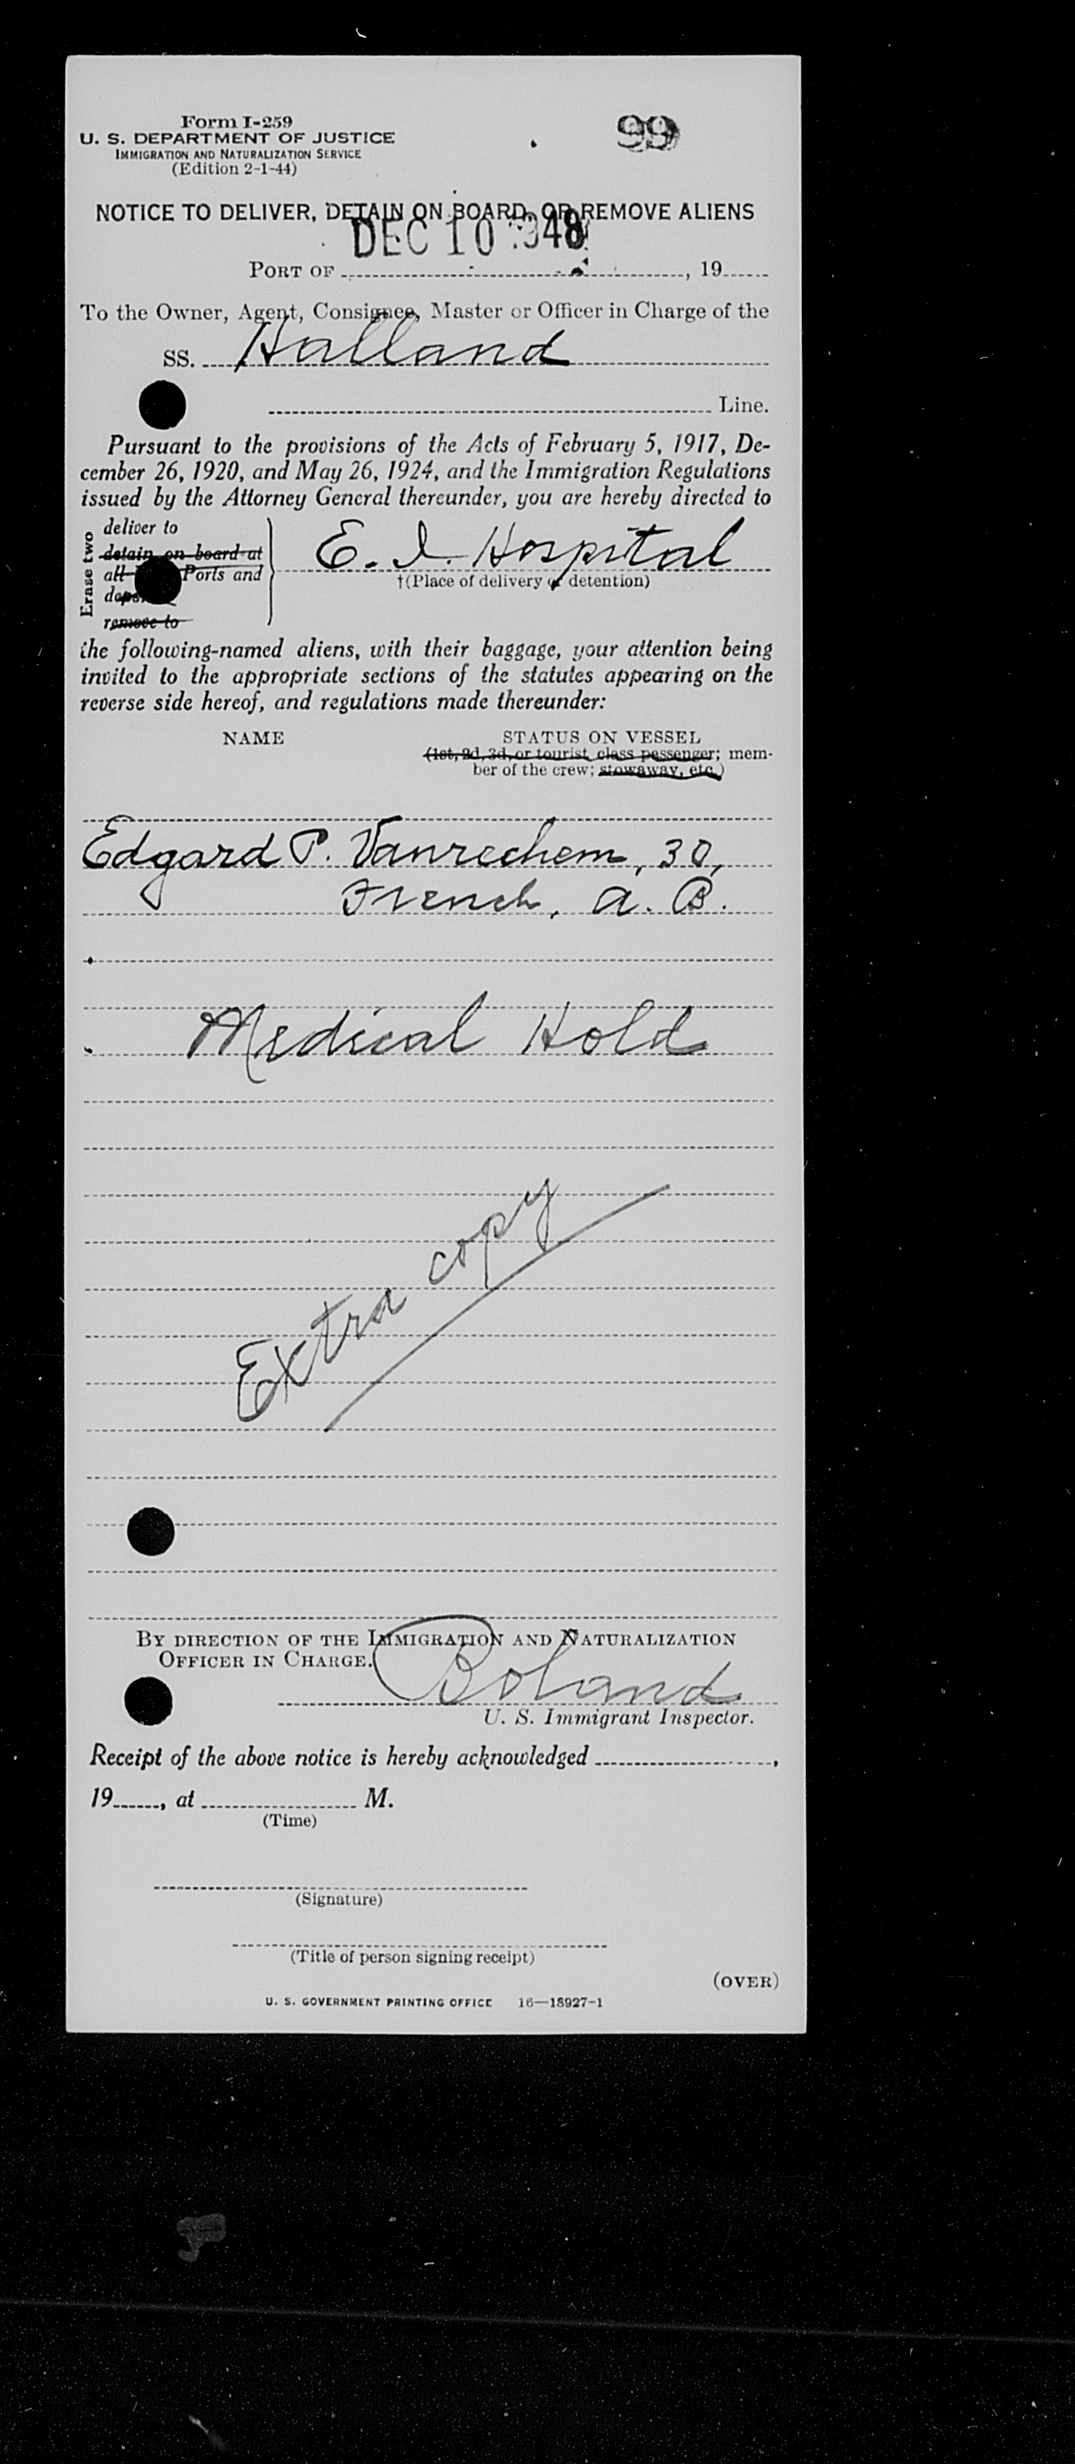 Form I-259
U. S. DEPARTMENT OF JUSTICE
IMMIGRATION AND NATURALIZATION SERVICE
(Edition 2-1-44)
99
NOTICE TO DELIVER, DETAIN ON BOARD, OR REMOVE ALIENS
DEC 10 1948
PORT OF , 19
To the Owner, Agent, Consignee, Master or Officer in Charge of the
SS. Halland
Line.
Pursuant to the provisions of the Acts of February 5, 1917, De-
cember 26, 1920, and May 26, 1924, and the Immigration Regulations
issued by the Attorney General thereunder, you are hereby directed to
Erase two
deliver to
detain on board at
all Ports and
remove to
E. I. Hospital
†(Place of delivery or detention)
the following-named aliens, with their baggage, your attention being
invited to the appropriate sections of the statutes appearing on the
reverse side hereof, and regulations made thereunder:
NAME STATUS ON VESSEL
(1st, 2d, 3d, or tourist class passenger; mem-
ber of the crew; stowaway, etc.)
Edgard P. Vanrechem, 30,
French, A. B.
Medical Hold
Extra copy
BY DIRECTION OF THE IMMIGRATION AND NATURALIZATION
OFFICER IN CHARGE.
Boland
U. S. Immigrant Inspector.
Receipt of the above notice is hereby acknowledged ,
19 , at M.
(Time)
(Signature)
(Title of person signing receipt)
(OVER)
U. S. GOVERNMENT PRINTING OFFICE 16—18927-1